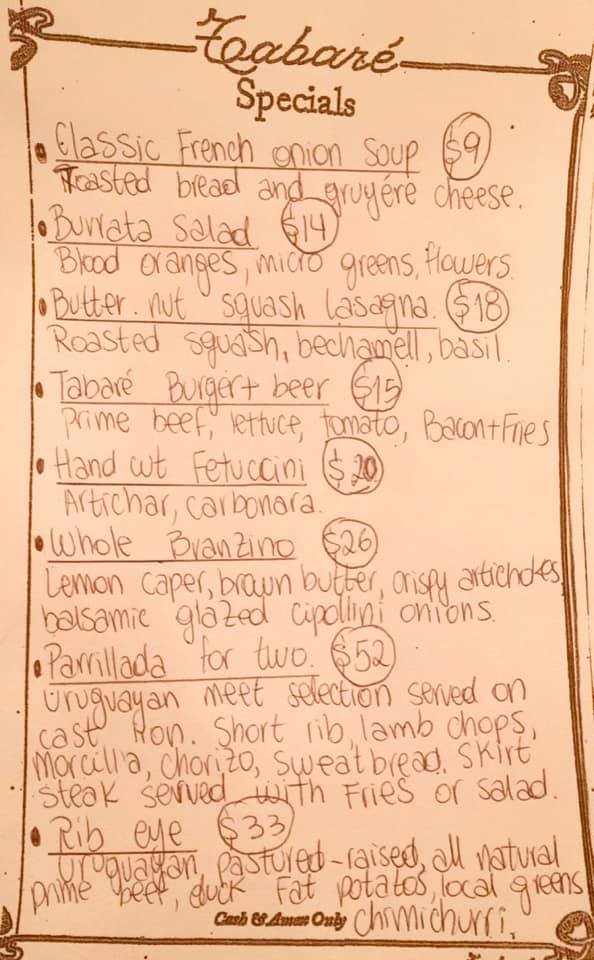 Tabaré
Specials
• Classic French onion Soup $9
Toasted bread and gruyére cheese.
• Burrata Salad $14
Blood oranges, micro greens, flowers
• Butter.nut squash lasagna. $18
Roasted squash, bechamell, basil.
• Tabaré Burger+ beer $15
Prime beef, lettuce, tomato, Bacon+Fries
• Hand cut Fetuccini $20
Artichar, carbonara.
• Whole Branzino $26
Lemon caper, brown butter, crispy artichokes,
balsamic glazed cipollini onions.
• Parrillada for two. $52
Uruguayan meet selection served on
cast Iron. Short rib, lamb chops,
Morcilla, Chorizo, Sweatbread. Skirt
steak served with Fries or salad.
• Rib eye $33
Uruguayan, pastured-raised, all natural
prime beef, duck Fat potatos, local greens
Cash & Amex Only chimichurri.